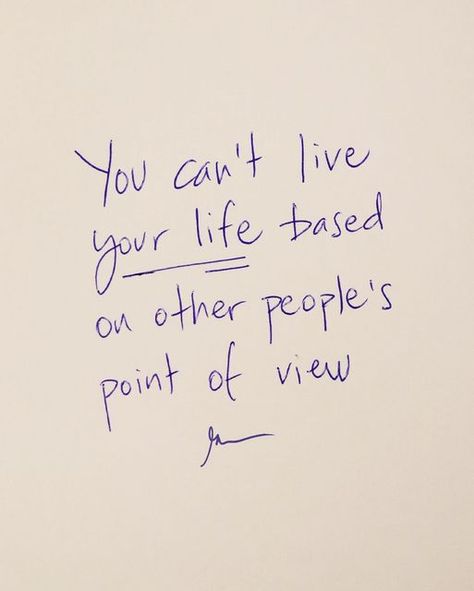 You can't live
your life based
on other people's
point of view